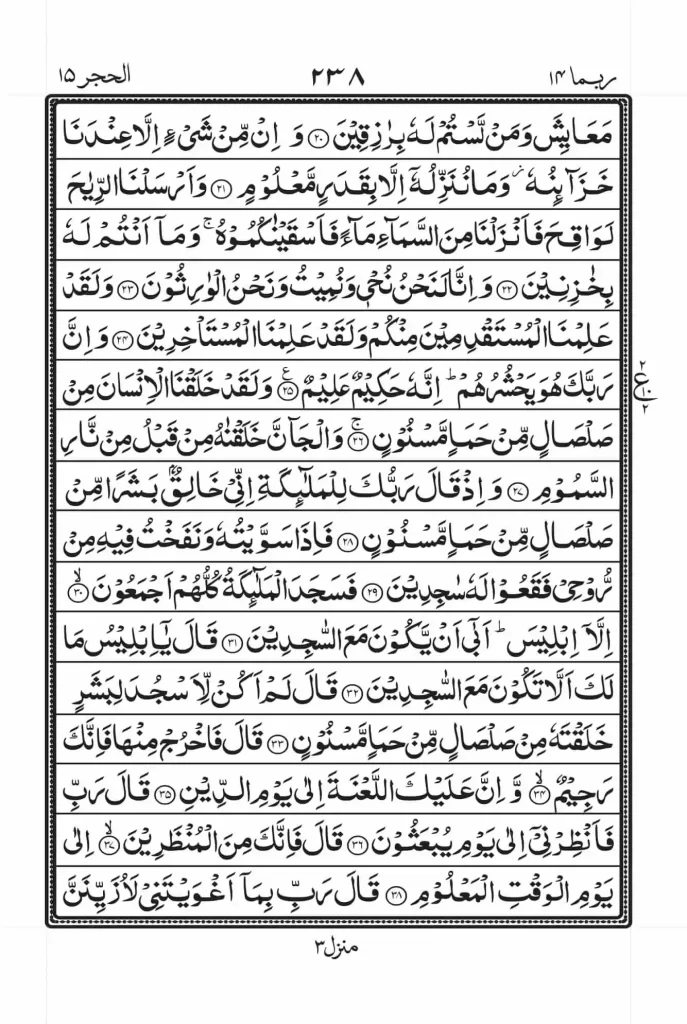 ربما ۱۴ ۲۳۸ الحجر ۱۵
مَعَايِشَ وَمَنْ لَّسْتُمْ لَهٗ بِرٰزِقِيْنَ ۝۲۰ وَ اِنْ مِّنْ شَيْءٍ اِلَّا عِنْدَنَا
خَزَآئِنُهٗ ۫ وَمَا نُنَزِّلُهٗٓ اِلَّا بِقَدَرٍ مَّعْلُوْمٍ ۝۲۱ وَاَرْسَلْنَا الرِّيٰحَ
لَوَاقِحَ فَاَنْزَلْنَا مِنَ السَّمَآءِ مَآءً فَاَسْقَيْنٰكُمُوْهُ ۚ وَمَآ اَنْتُمْ لَهٗ
بِخٰزِنِيْنَ ۝۲۲ وَ اِنَّا لَنَحْنُ نُحْيٖ وَنُمِيْتُ وَنَحْنُ الْوٰرِثُوْنَ ۝۲۳ وَلَقَدْ
عَلِمْنَا الْمُسْتَقْدِمِيْنَ مِنْكُمْ وَلَقَدْ عَلِمْنَا الْمُسْتَاْخِرِيْنَ ۝۲۴ وَ اِنَّ
رَبَّكَ هُوَ يَحْشُرُهُمْ ؕ اِنَّهٗ حَكِيْمٌ عَلِيْمٌ ۝۲۵ ع وَلَقَدْ خَلَقْنَا الْاِنْسَانَ مِنْ
۲ ع ۲
صَلْصَالٍ مِّنْ حَمَاٍ مَّسْنُوْنٍ ۝۲۶ ۚ وَالْجَآنَّ خَلَقْنٰهُ مِنْ قَبْلُ مِنْ نَّارِ
السَّمُوْمِ ۝۲۷ وَ اِذْ قَالَ رَبُّكَ لِلْمَلٰٓئِكَةِ اِنِّيْ خَالِقٌۢ بَشَرًا مِّنْ
صَلْصَالٍ مِّنْ حَمَاٍ مَّسْنُوْنٍ ۝۲۸ فَاِذَا سَوَّيْتُهٗ وَنَفَخْتُ فِيْهِ مِنْ
رُّوْحِيْ فَقَعُوْا لَهٗ سٰجِدِيْنَ ۝۲۹ فَسَجَدَ الْمَلٰٓئِكَةُ كُلُّهُمْ اَجْمَعُوْنَ ۝۳۰ ۙ
اِلَّآ اِبْلِيْسَ ؕ اَبٰٓى اَنْ يَّكُوْنَ مَعَ السّٰجِدِيْنَ ۝۳۱ قَالَ يٰٓاِبْلِيْسُ مَا
لَكَ اَلَّا تَكُوْنَ مَعَ السّٰجِدِيْنَ ۝۳۲ قَالَ لَمْ اَكُنْ لِّاَسْجُدَ لِبَشَرٍ
خَلَقْتَهٗ مِنْ صَلْصَالٍ مِّنْ حَمَاٍ مَّسْنُوْنٍ ۝۳۳ قَالَ فَاخْرُجْ مِنْهَا فَاِنَّكَ
رَجِيْمٌ ۝۳۴ ۙ وَّ اِنَّ عَلَيْكَ اللَّعْنَةَ اِلٰى يَوْمِ الدِّيْنِ ۝۳۵ قَالَ رَبِّ
فَاَنْظِرْنِيْٓ اِلٰى يَوْمِ يُبْعَثُوْنَ ۝۳۶ قَالَ فَاِنَّكَ مِنَ الْمُنْظَرِيْنَ ۝۳۷ ۙ اِلٰى
يَوْمِ الْوَقْتِ الْمَعْلُوْمِ ۝۳۸ قَالَ رَبِّ بِمَآ اَغْوَيْتَنِيْ لَاُزَيِّنَنَّ
منزل ۳